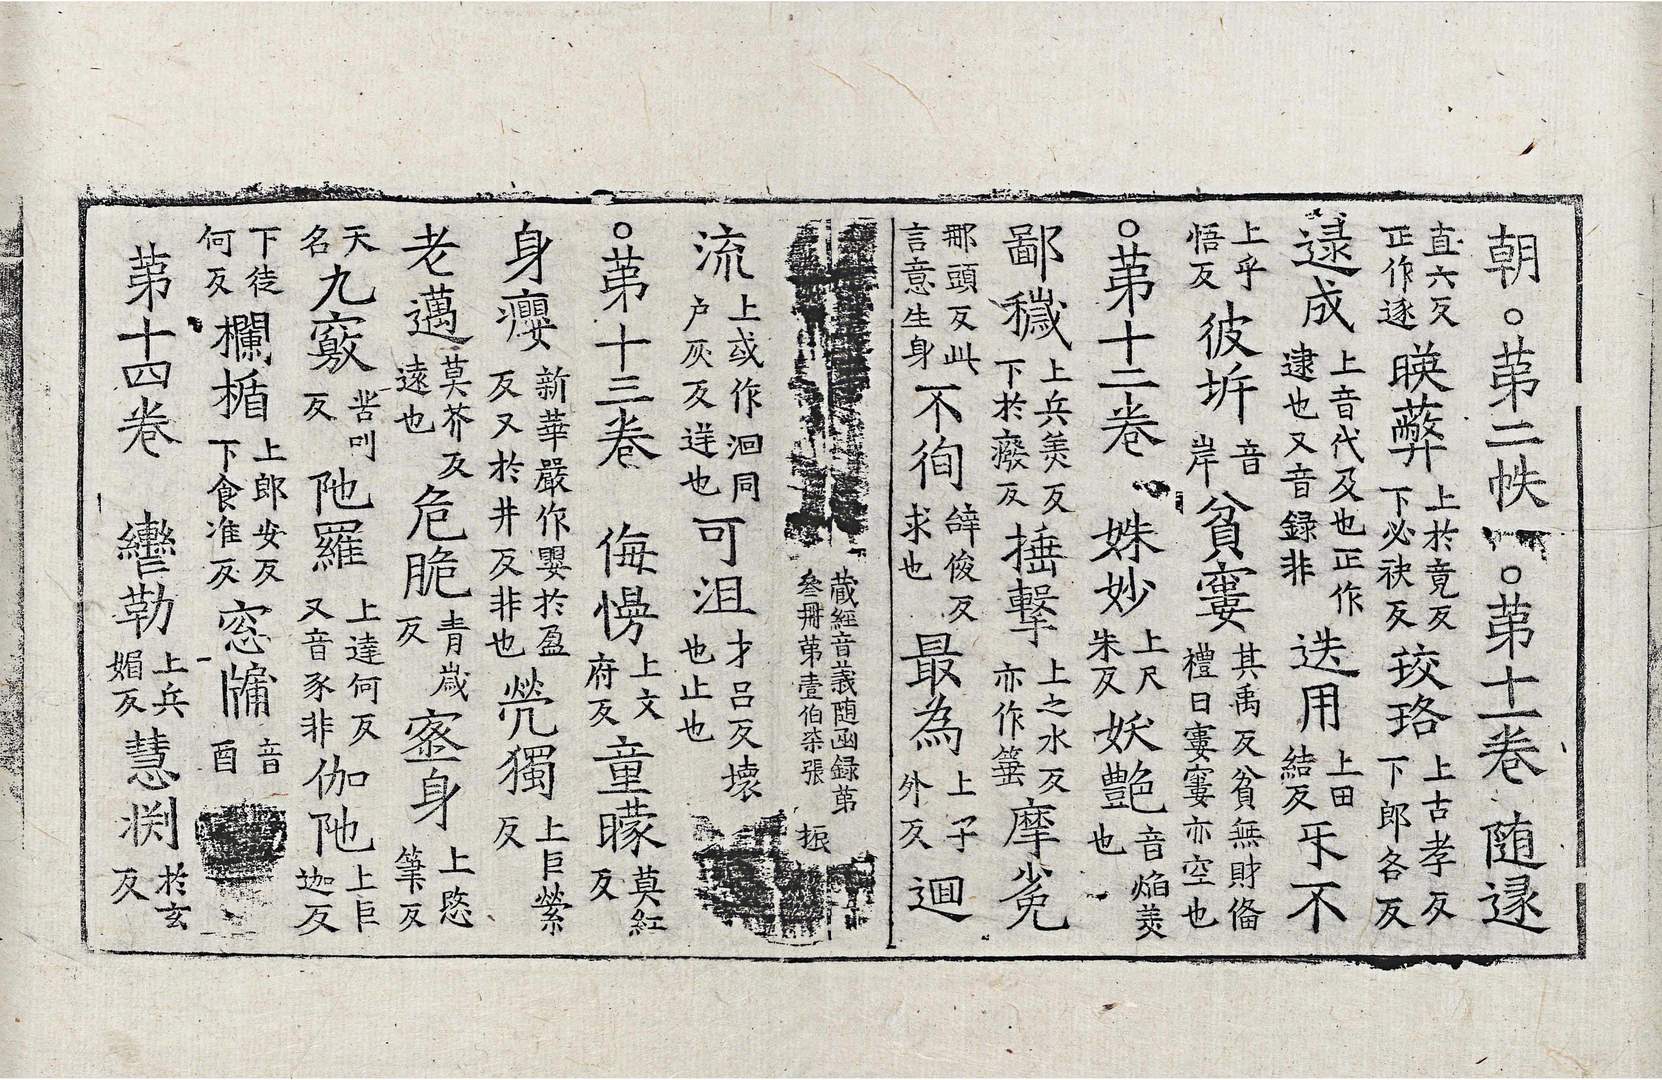 朝○苐二帙○苐十一卷随逯
直六反正作逐暎蔽上於竟反下必袂反珓珞上古孝反下郎各反
逯成上音代及也正作逮也又音録非迭用上田結反㸦不
上乎悟反彼圻音岸貧窶其禹反貧無財俻禮曰窶窶亦空也
○苐十二卷 姝妙上尺朱反妖艶音焔羙也
鄙穢上兵羙反下於癈反捶撃上之水反亦作箠摩㝹
那頭反此言意生身不徇辝俊反求也最為上子外反迴
藏經音義随函録苐叁冊苐壹伯柒張 振
流上或作洄同户灰反逆也可沮才呂反壊也止也
○苐十三卷 侮慢上文府反童矇莫紅反
身癭新華嚴作嬰於盈反又於井反非也煢獨上巨縈反
老邁莫芥反遠也危脆青歳反宻身上愍筆反
天名九竅苦叫反陁羅上達何反又音豕非伽陁上巨迦反
下徒何反欄楯上郎安反下食准反窓牖音酉
苐十四卷 轡勒上兵媚反慧渕於玄反